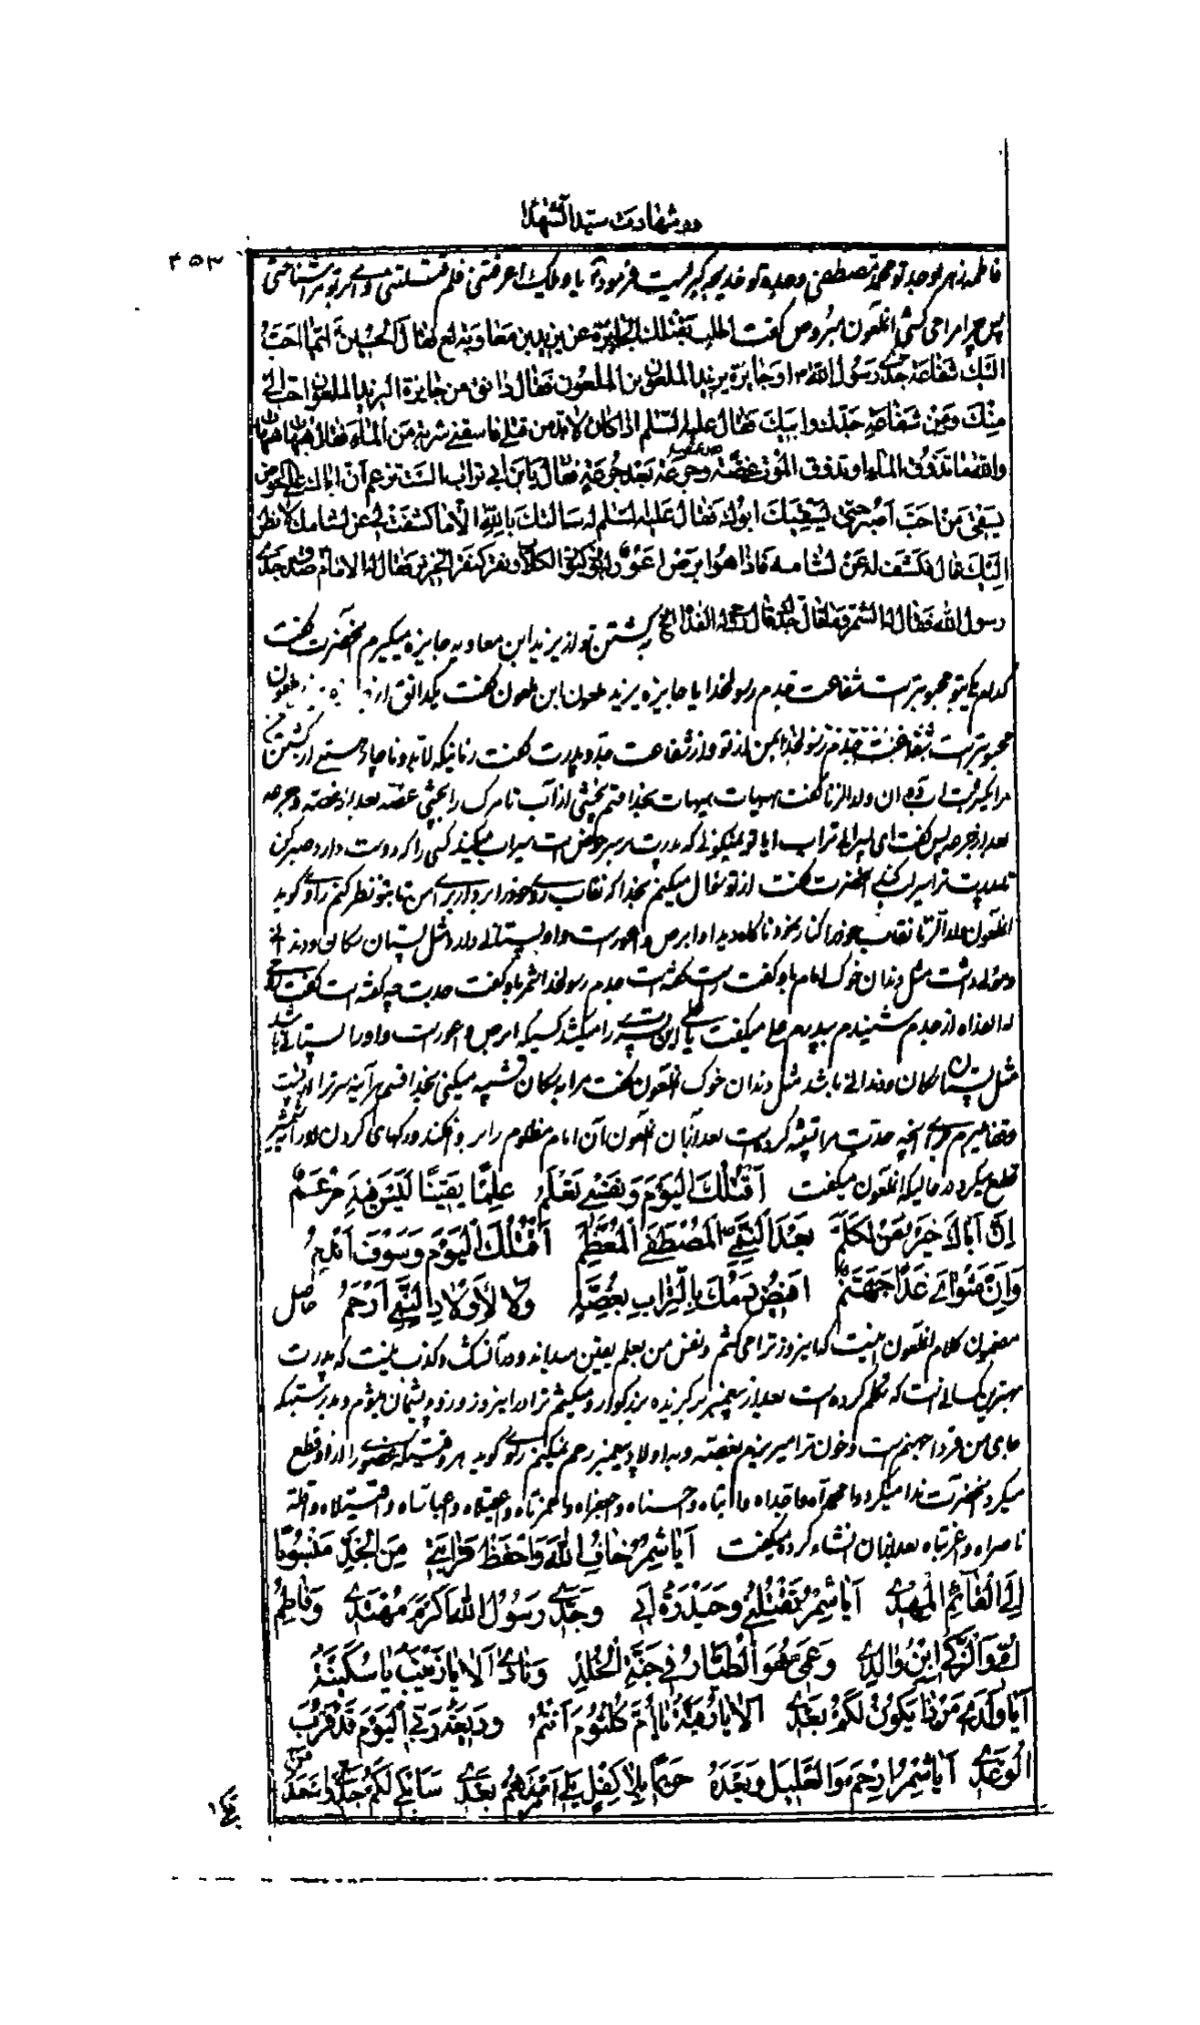 در شهادت سید الشهدا
۴۵۳
فاطمه زهرا و جد تو محمد مصطفی وجده تو خدیجه کبریست فرمود آیا ویلک اعرفتنی فلم تقتلنی وای بر تو مرا شناختی
پس چرا مرا می کشی انملعون مبروص گفت اطلب بقتلك الجایزة عن یزید بن معاویة لع فقال الحسین ع ایما احب
الیك شفاعة جدی رسول الله ص او جایزة یزید الملعون بن الملعون فقال دانق من جایزة الیزید الملعون احب الی
منك ومن شفاعة جدك وابیك فقال علیه السلم اذا کان لابد من قتلی فاسقنی شربة من الماء فقال هیهات هیهات
والله ما تذوق الماء او تذوق الموت غصة بعد غصة وجرعة بعد جرعة فقال یابن ابی تراب الست تزعم ان اباك علی الحوض
یسقی من احب اصبر حتی یسقیك ابوك فقال علیه السلم له سالتك بالله الا ما کشفت لی عن لثامك لا نظر
الیك قال فکشف له عن لثامه فاذا هو ابرص اعور له بوز کبوز الکلاب وشعر کشعر الخنزیر فقال له الامام ع صدق جدی
رسول الله فقال له الشمر وما قال جدك قال له الخ بکشتن تو از یزید ابن معاویه جایزه میگیرم آنحضرت گفت
کدام یک بتو محبوبتر است شفاعت جدم رسولخدا یا جایزه یزید ملعون ابن ملعون گفت یکدانق از ملعون
محبوبتر است شفاعت جدم رسولخدا بمن از تو و از شفاعت جد و پدرت گفت زمانیکه لابد و ناچار هستی از کشتن
مرا یکشربت آب ده ان ولد الزنا گفت هیهات هیهات بخدا قسم نچشی از آب تا مرک را بچشی غصه بعد از غصه و جرعه
بعد از جرعه پس گفت ای پسر ابی تراب آیا تو نمیگوئی که پدرت بر سر حوض است سیراب میکند کسی را که دوست دارد صبر کن
تا پدرت ترا سیراب کند آنحضرت گفت از تو سؤال میکنم بخدا که نقاب روی خود را برداری برای من تا بتو نظر کنم راوی گوید
انملعون ولد الزنا نقاب خود را کنار نمود ناگاه دید او ابرص و اعور است و او پستانی دارد مثل پستان سکان و دندانی
و موئی داشت مثل دندان خوک امام باو گفت راست گفته است جدم رسولخدا شمر باو گفت جدت چه گفته است گفت
از جدم شنیدم بپدرم علی میگفت یا علی این پسرت را میکشد کسیکه ابرص و اعور است و او را پستانی باشد
مثل پستان سکان و دندانی باشد مثل دندان خوک انملعون گفت مرا بسکان تشبیه میکنی بخدا قسم هر آینه سر ترا از پشت
قفا میبرم بجزای آنچه جدت مرا تشبیه کرده است بعد از آن انملعون آن امام مظلوم را بر و افکند و رکهای گردن او را بشمشیر
قطع میکرد در حالیکه انملعون میگفت اَقْتُلُكَ الْیَوْمَ وَنَفْسِی تَعْلَمُ عِلْمًا یَقِینًا لَیْسَ فِیهِ مَزْعَمٌ
اِنَّ اَبَاكَ خَیْرُ مَنْ تَکَلَّمَ بَعْدَ النَّبِیِّ الْمُصْطَفَی الْمُعَظَّمِ اَقْتُلُكَ الْیَوْمَ وَسَوْفَ اَنْدَمُ
وَاِنَّ مَثْوَایَ غَدًا جَهَنَّمُ اَفِیضُ دَمَكَ بِالتُّرَابِ بِغُصَّةٍ وَلَا لِاَوْلَادِ النَّبِیِّ اَرْحَمُ حاصل
مضمون کلام انملعون اینست که امروز ترا می کشم و نفس من بعلم یقین میداند و در آن شک و کذب نیست که پدرت
بهترین کسانی است که تکلم کرده است بعد از پیغمبر برگزیده بزرگوار و میکشم ترا در امروز و زود پشیمان میشوم و بدرستیکه
جای من فردا جهنم است و خون ترا میریزم بغصه و به اولاد پیغمبر رحم نمیکنم راوی گوید هر وقتیکه عضوی را از او قطع
میکرد آنحضرت ندا میکرد وا محمداه وا جداه وا ابتاه وا حسناه وا جعفراه وا حمزتاه وا عقیلاه وا عباساه وا قتیلاه وا قلة
ناصراه وا غربتاه بعد از ان انشاء کرد میگفت اَیَا شِمْرُ خَافِ اللهَ وَاحْفَظْ قَرَابَتِی مِنَ الْجَدِّ مَنْسُوبًا
اِلَی الْقَائِمِ الْمَهْدِی اَیَا شِمْرُ تَقْتُلُنِی وَحَیْدَرَةُ اَبِی وَجَدِّی رَسُولُ اللهِ اَکْرَمُ مُهْتَدِی وَفَاطِمُ
اُمِّی وَالزَّکِیُّ ابْنُ وَالِدِی وَعَمِّی هُوَ الطَّیَّارُ فِی جَنَّةِ الْخُلْدِ وَنَادَی اَلَا یَا زَیْنَبُ یَا سُکَیْنَةُ
اَیَا وَلَدِی مَنْ ذَا یَکُونُ لَکُمْ بَعْدِی اَلَا یَا رُقَیَّةُ یَا اُمَّ کُلْثُومَ اَنْتُمُ وَدِیعَةُ رَبِّی الْیَوْمَ قَدْ قَرُبَ
الْوَعْدُ اَیَا شِمْرُ ارْحَمْ وَالْعَلِیلَ وَبَعْدَهُ حَرِیمًا بِلَا کِفْلٍ یَلِی اَمْرَهُمْ بَعْدِی سَاَبْکِی لَکُمْ جَدِّی